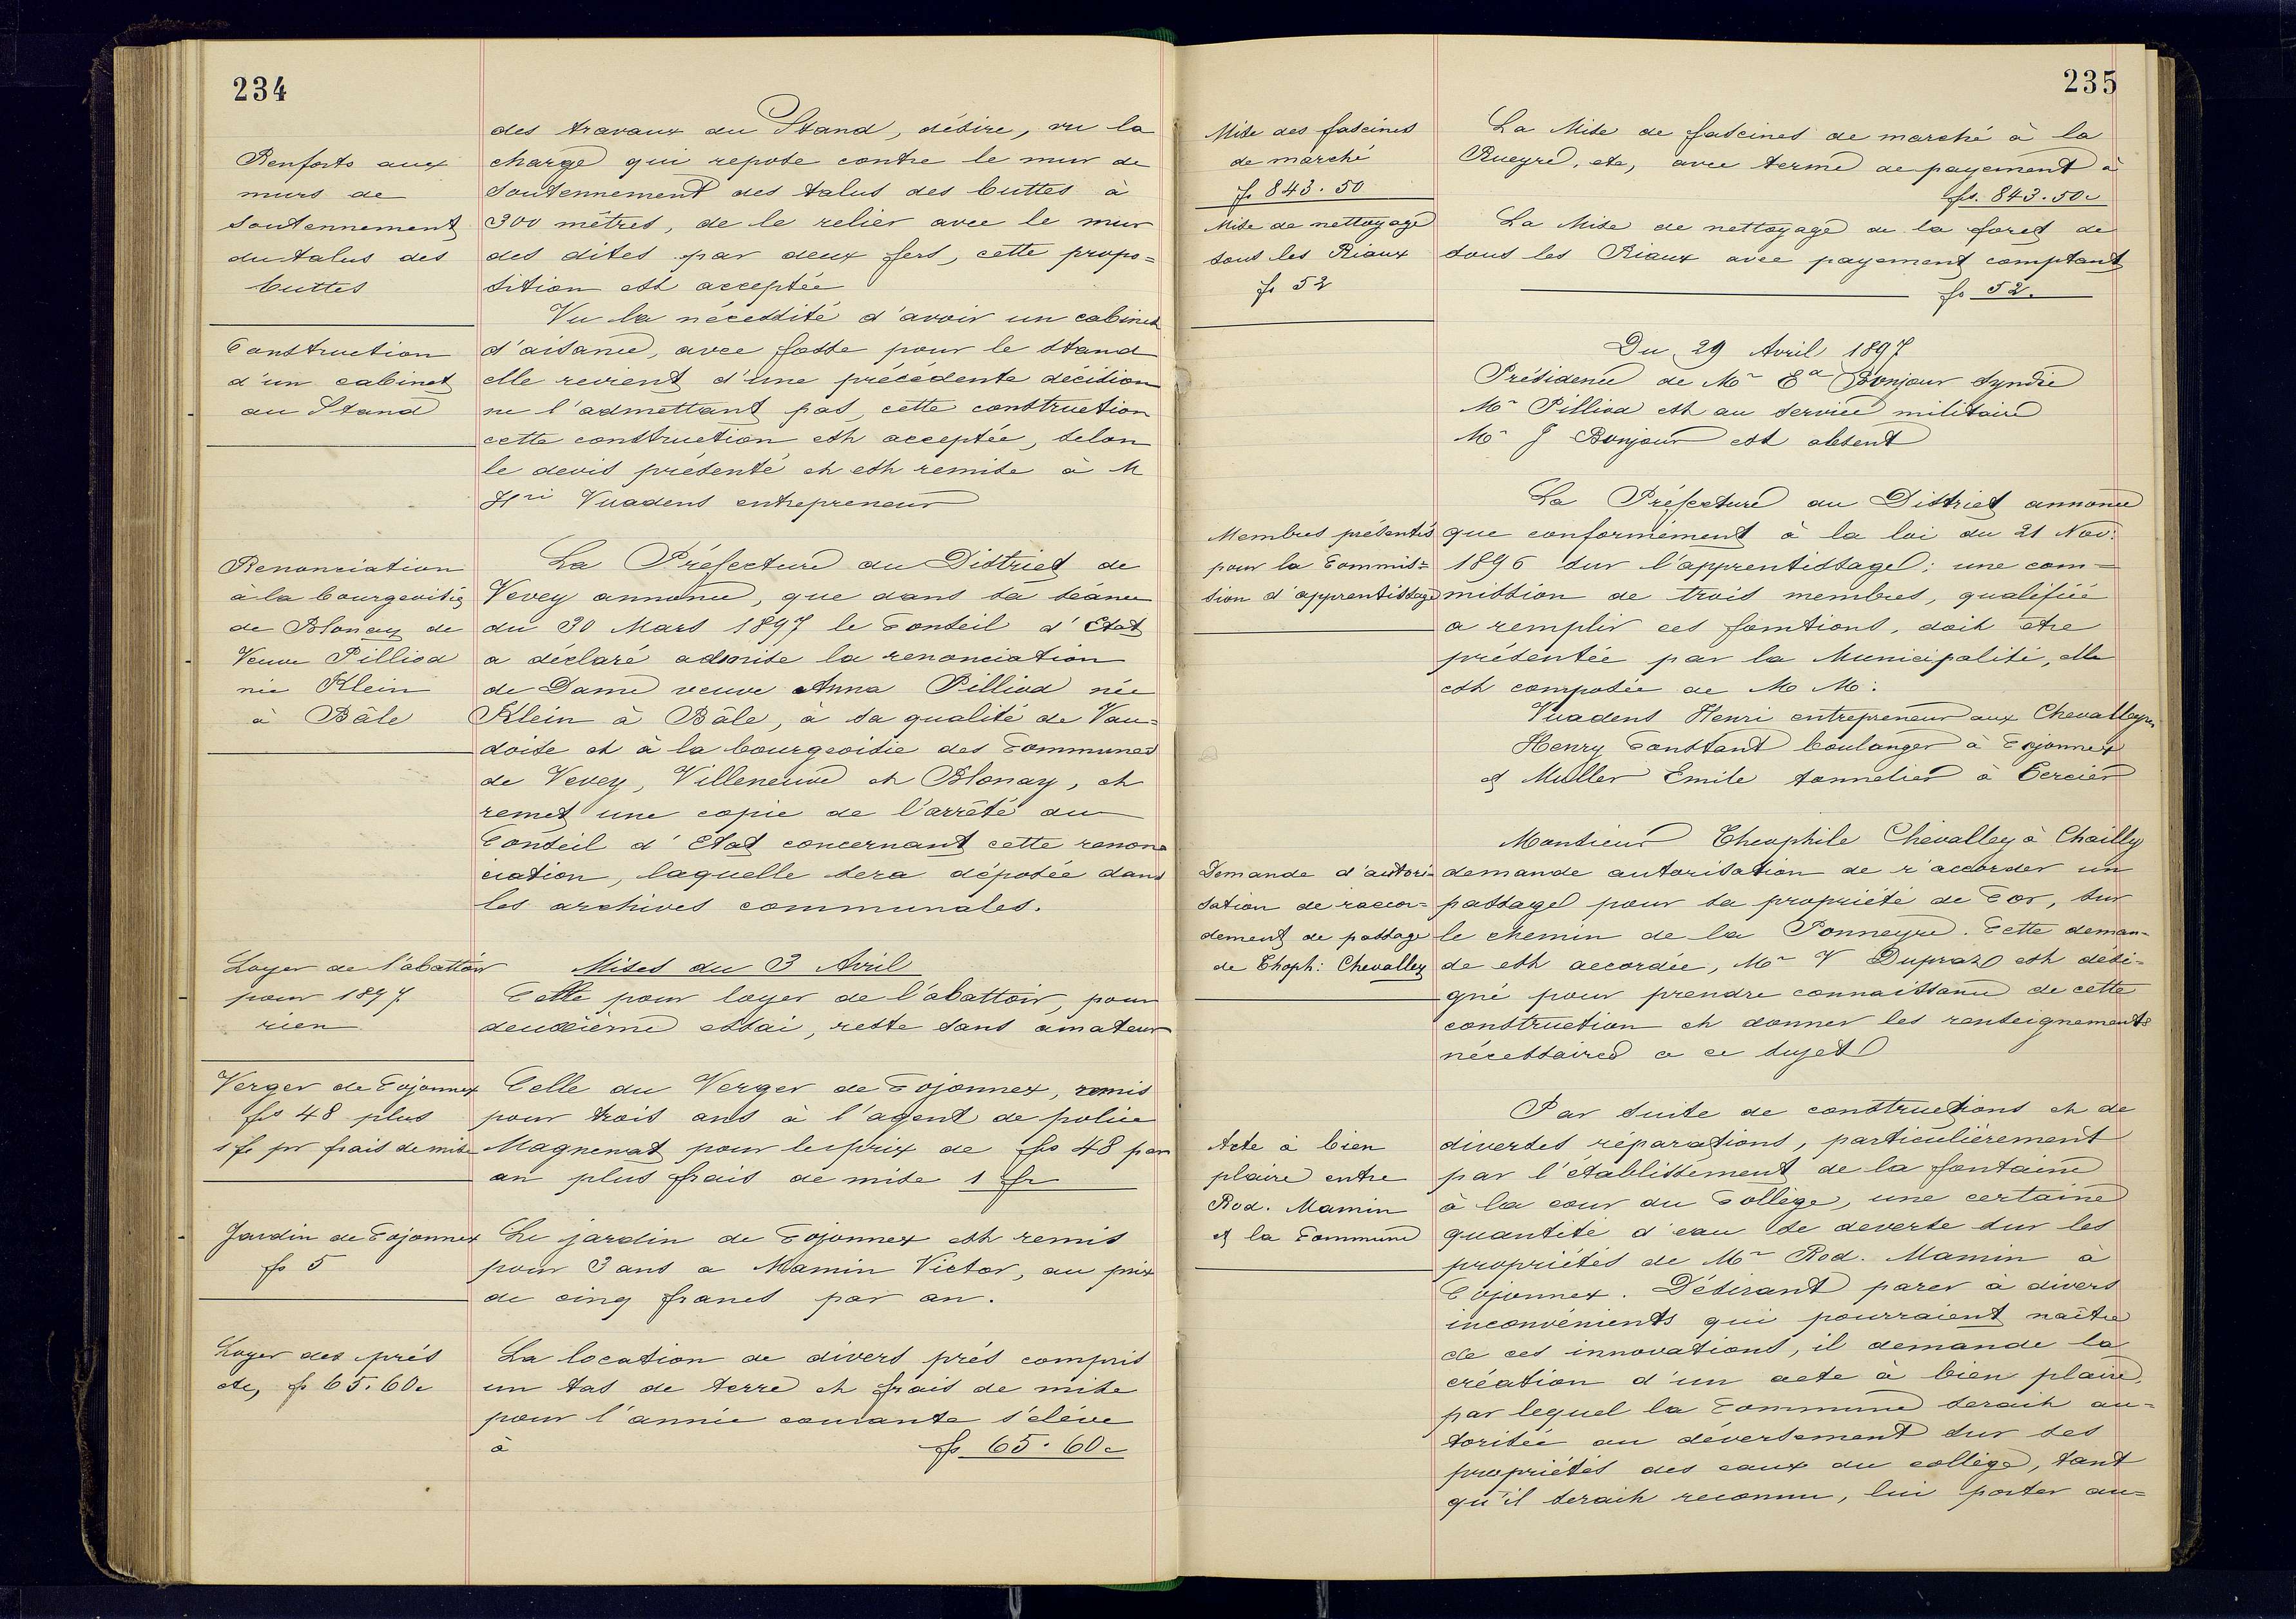 234
des travaux du Stand, désire, vu la
Renforts aux
murs de
soutennement
du talus des
buttes
charge qui repose contre le mur de
soutennement des talus des buttes à
300 mètres, de le relier avec le mur
des dites par deux fers, cette propo=
sition est acceptée
Vu la nécessité d'avoir un cabinet
Construction
d'un cabinet
au Stand
d'aisance, avec fosse pour le stand
elle revient d'une précédente décision
ne l'admettant pas, cette construction
cette construction est acceptée, selon
le devis présenté et est remise à M
Hri Vuadens entrepreneur
Renonciation
à la bourgeoisie
de Blonay de
Veuve Pilliod
née Klein
à Bâle
La Préfecture du District de
Vevey annonce, que dans sa séance
du 30 Mars 1897 le Conseil d'Etat
a déclaré admise la renonciation
de Dame veuve Anna Pilliod née
Klein à Bâle, à sa qualité de Vau=
doise et à la bourgeoisie des Communes
de Vevey, Villeneuve et Blonay, et
remet une copie de l'arrêté du
Conseil d'Etat concernant cette renon
ciation, laquelle sera déposée dans
les archives communales.
Mises du 3 Avril
Loyer de l'abattoir
pour 1897
rien
Celle pour loyer de l'abattoir, pour
deuxième essai, reste sans amateur
Verger de Cojonnex
frs 48 plus
1 fr pr frais de mise
Celle du Verger de Cojonnex, remis
pour trois ans à l'agent de police
Magnenat pour le prix de frs 48 par
an plus frais de mise 1 fr
Jardin de Cojonnex
fr 5
Le jardin de Cojonnex est remis
pour 3 ans a Mamin Victor, au prix
de cinq francs par an.
Loyer des prés
etc, fr 65.60c
La location de divers prés compris
un tas de terre et frais de mise
pour l'année courante s'élève
à fr 65.60c
235
Mise des fascines
de marché
fr 843.50
La Mise de fascines de marché à la
Rueyre, etc, avec terme de payement à
frs. 843.50c
Mise de nettoyage
sous les Riaux
fr 52
La Mise de nettoyage de la foret de
sous les Riaux avec payement comptant
fr 52.
Du 29 Avril 1897
Présidence de Mr Ed Bonjour Syndic
Mr Pilliod est au service militaire
Mr J Bonjour est absent
La Préfecture du District annonce
Membres présentés
pour la Commis=
sion d'apprentissage
que conformément à la loi du 21 Nov:
1896 sur l'apprentissage; une com=
mission de trois membres, qualifiée
a remplir ces fonctions, doit être
présentée par la Municipalité, elle
est composée de M M:
Vuadens Henri entrepreneur aux Chevalleyres
Henry Constant boulanger à Cojonnex
et Muller Emile tonnelier à Cercier
Monsieur Theophile Chevalley à Chailly
Demande d'autori=
sation de raccor=
dement de passage
de Thoph: Chevalley
demande autorisation de r'accorder un
passage pour sa propriété de Cor, sur
le chemin de la Ponneyre. Cette deman=
de est accordée, Mr V Dupraz est dési=
gné pour prendre connaissance de cette
construction et donner les renseignements
nécessaires a ce sujet
Par suite de constructions et de
Acte à bien
plaire entre
Rod. Mamin
et la Commune
diverses réparations, particulièrement
par l'établissement de la fontaine
à la cour du Collège, une certaine
quantité d'eau se deverse sur les
propriétés de Mr Rod. Mamin à
Cojonnex. Désirant parer à divers
inconvénients qui pourraient naître
de ces innovations, il demande la
création d'un acte à bien plaire,
par lequel la Commune serait au=
torisée au déversement sur ses
propriétés des eaux du collège, tant
qu'il serait reconnu, lui porter au=